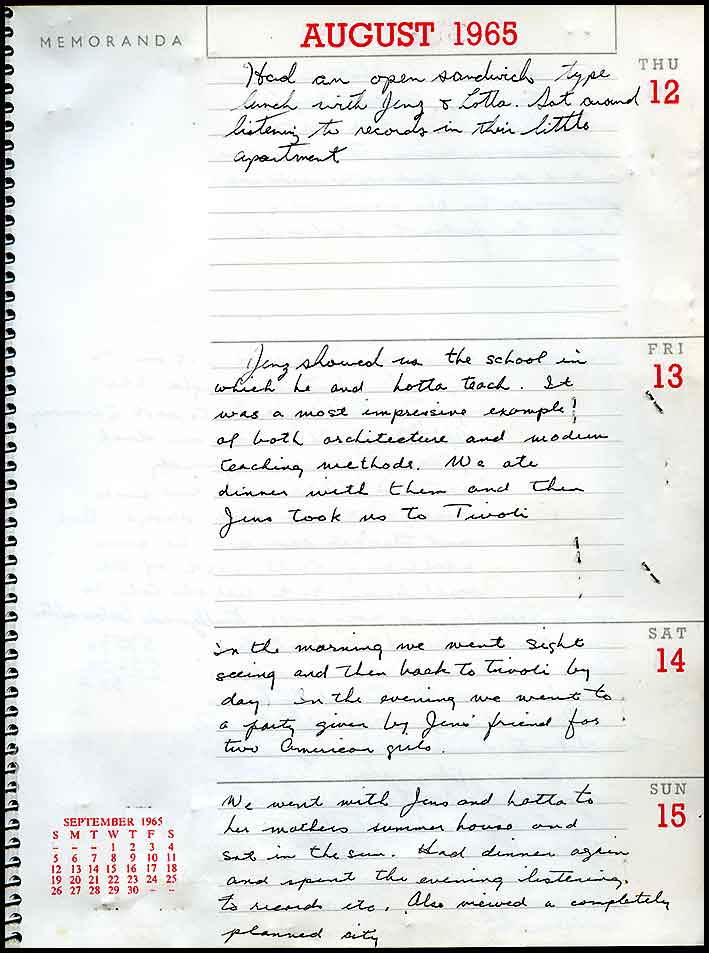 MEMORANDA
AUGUST 1965
THU
12
Had an open sandwich type
lunch with Jenz & Lotta. Sat around
listening to records in their little
apartment
FRI
13
Jenz showed us the school in
which he and Lotta teach. It
was a most impressive example
of both architecture and modern
teaching methods. We ate
dinner with them and then
Jens took us to Tivoli
SAT
14
In the morning we went sight
seeing and then back to Tivoli by
day. In the evening we went to
a party given by Jens' friend for
two American girls.
SUN
15
We went with Jens and Lotta to
her mothers summer house and
sat in the sun. Had dinner again
and spent the evening listening
to records etc. Also viewed a completely
planned city
SEPTEMBER 1965
S M T W T F S
– – – 1 2 3 4
5 6 7 8 9 10 11
12 13 14 15 16 17 18
19 20 21 22 23 24 25
26 27 28 29 30 – –